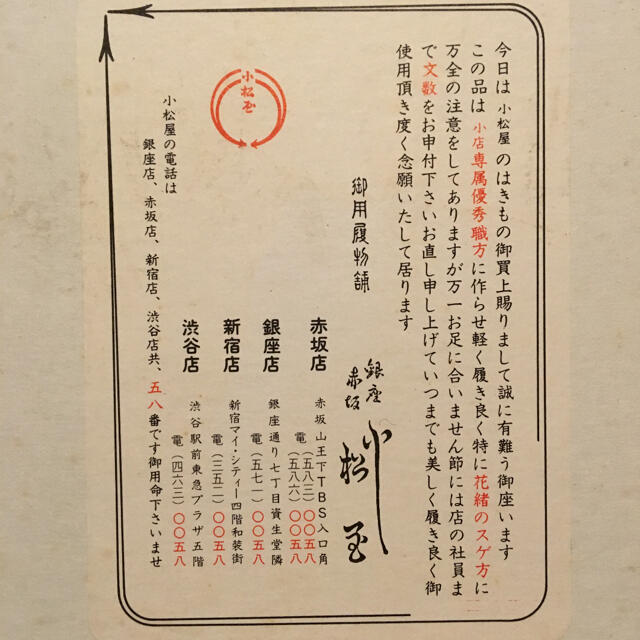 今日は小松屋のはきもの御買上賜りまして誠に有難う御座います
この品は小店専属優秀職方に作らせ軽く履き良く特に花緒のスゲ方に
万全の注意をしてありますが万一お足に合いません節には店の社員ま
で文数をお申付下さいお直し申し上げていつまでも美しく履き良く御
使用頂き度く念願いたして居ります
御用履物舗
銀座
赤坂
小松屋
赤坂店
赤坂山王下TBS入口角
電(五八三)〇〇五八
(五八六)〇〇五八
銀座店
銀座通り七丁目資生堂隣
電(五七一)〇〇五八
新宿店
新宿マイ・シティー四階和装街
電(三五二)〇〇五八
渋谷店
渋谷駅前東急プラザ五階
電(四六三)〇〇五八
小松屋
小松屋の電話は
銀座店、赤坂店、新宿店、渋谷店共、五八番です御用命下さいませ